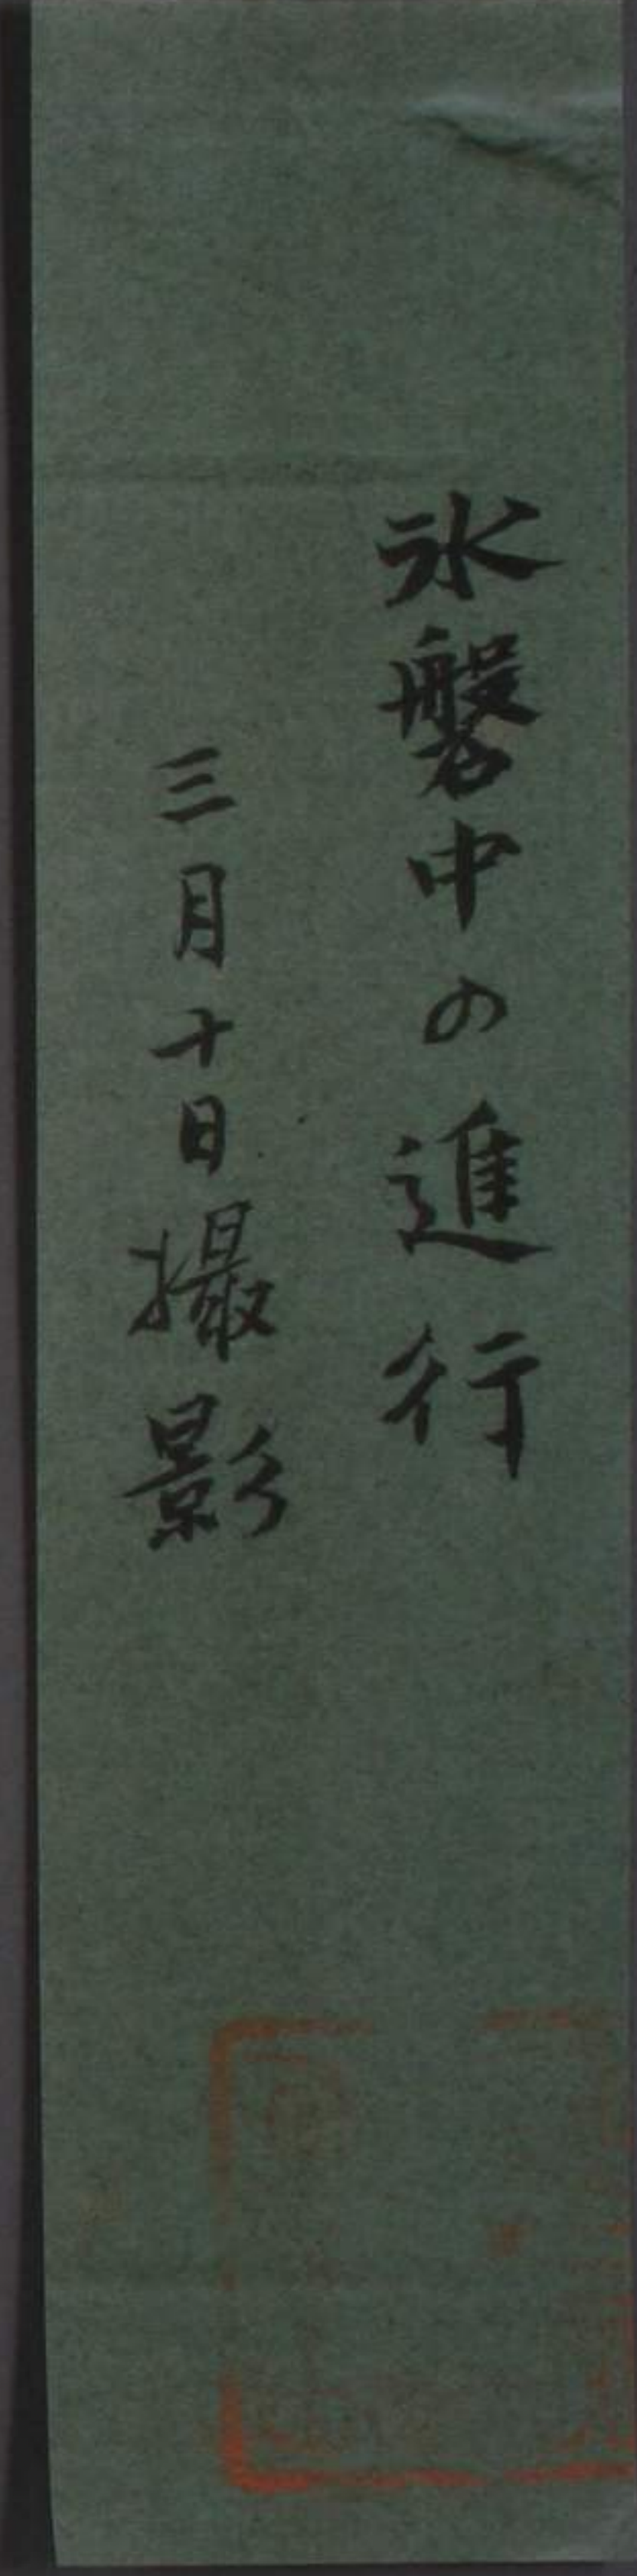 氷磐中の進行
三月十日撮影